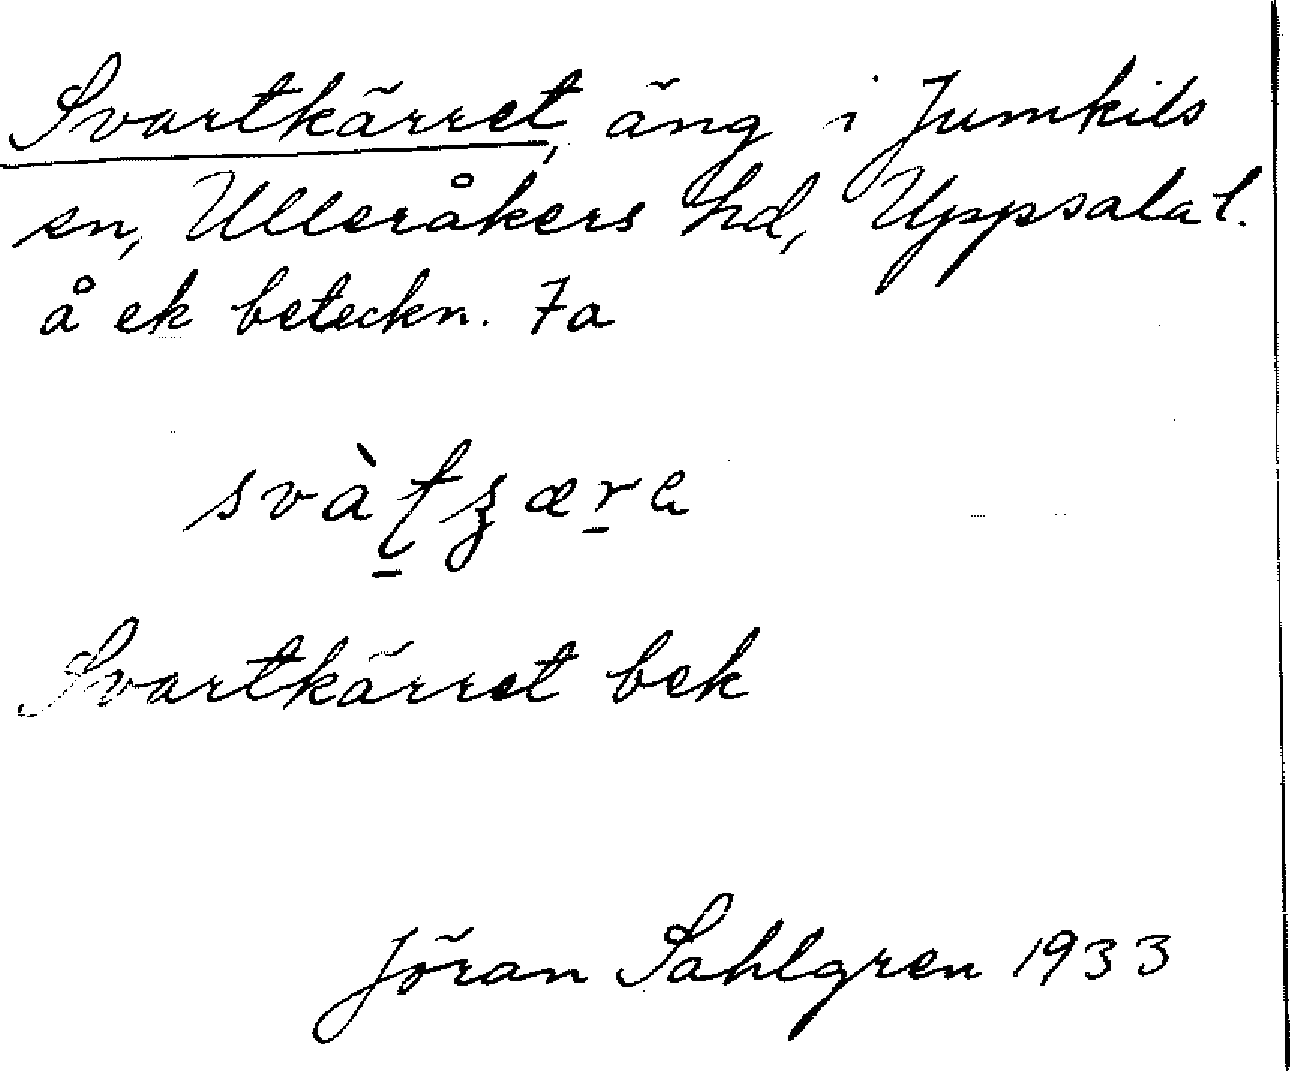 Svartkärret, äng i Jumkils
sn, Ulleråkers hd, Uppsala l.
å ek beteckn. 7a
Svartkärret bek
Jöran Sahlgren 1933